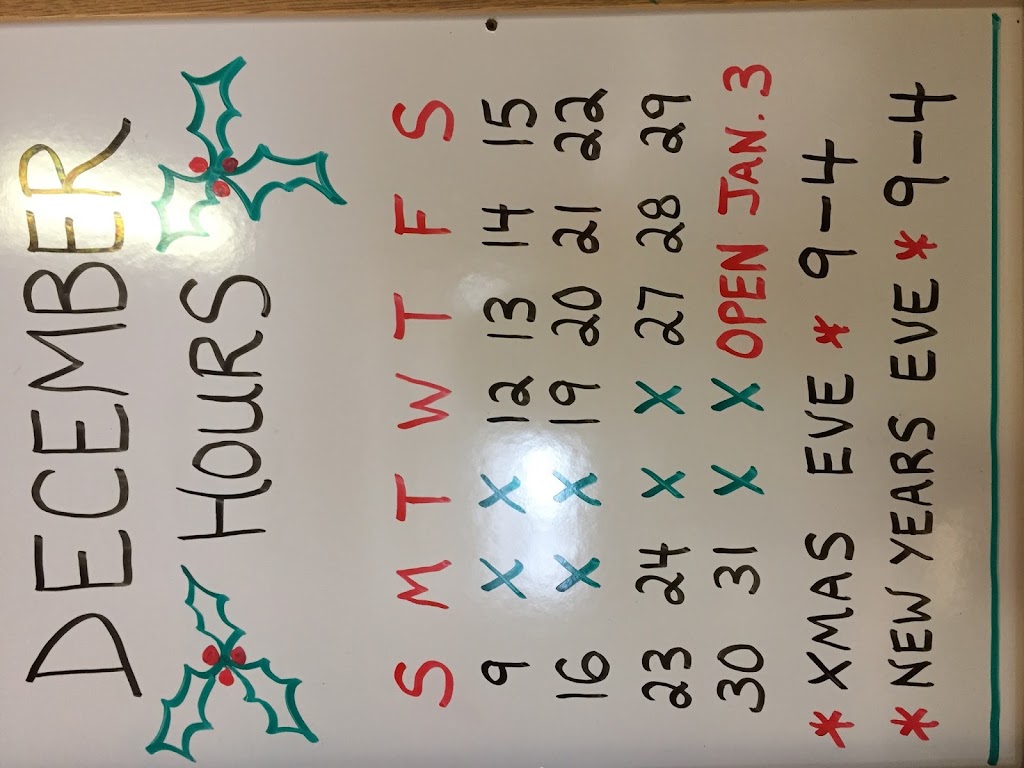 DECEMBER
HOURS
S M T W T F S
9 X X 12 13 14 15
16 X X 19 20 21 22
23 24 X X 27 28 29
30 31 X X OPEN JAN. 3
* XMAS EVE * 9-4
* NEW YEARS EVE * 9-4